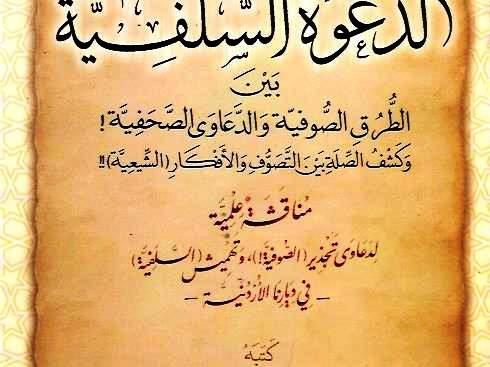 الدَّعْوَةُ السَّلَفِيَّة
بَيْنَ
الطُّرُقِ الصُّوفِيَّة وَالدَّعَاوَى الصَّحَفِيَّة!
وَكَشْفُ الصِّلَةِ بَيْنَ التَّصَوُّفِ وَالأَفْكَارِ (الشِّيعِيَّة)!!
مُنَاقَشَةٌ عِلْمِيَّة
لِدَعَاوَى تَجْذِيرِ (الصُّوفِيَّة!)، وَتَهْمِيشِ (السَّلَفِيَّة)
- فِي دِيَارِنَا الأُرْدُنِيَّة -
كَتَبَهُ